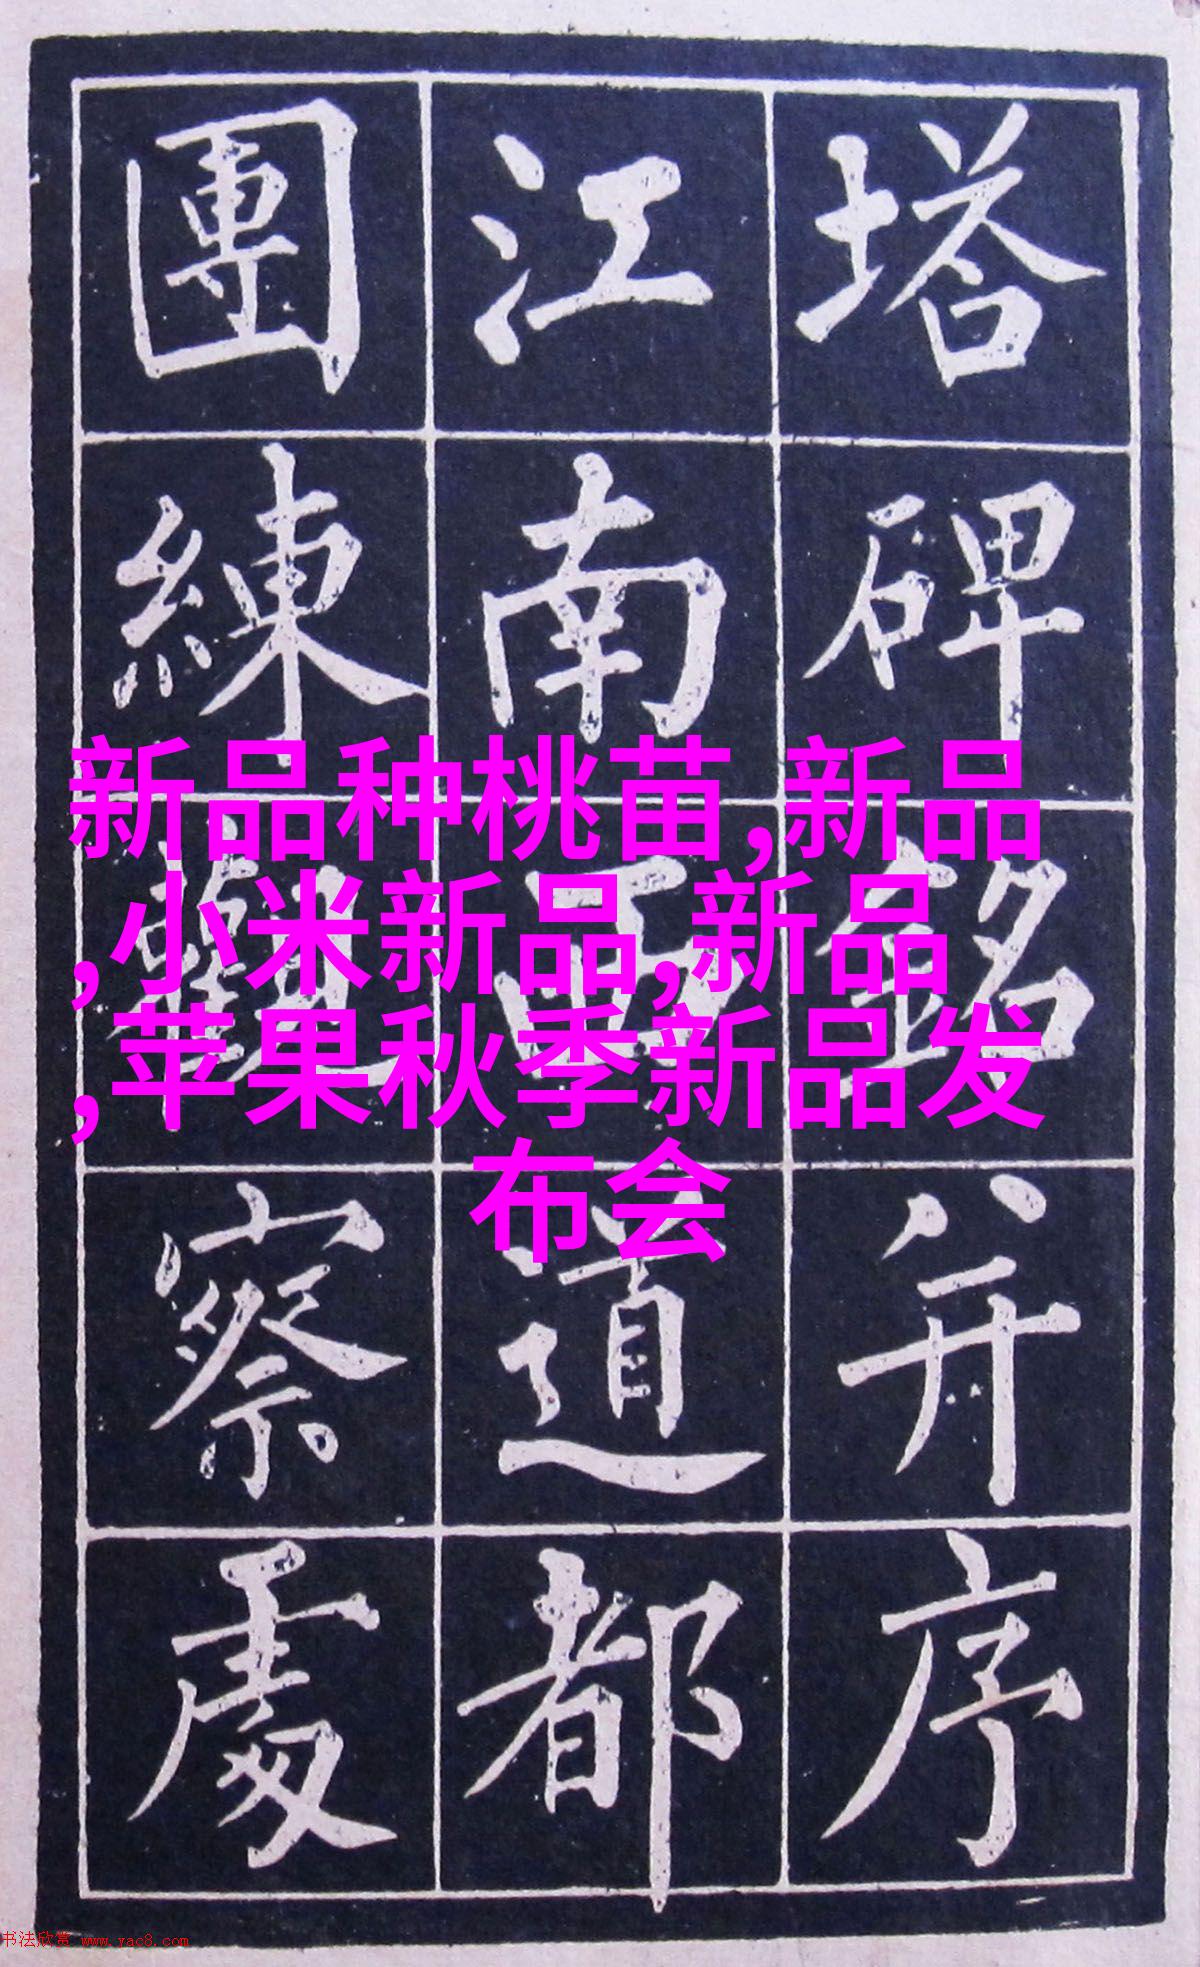 塔碑銘并序
江南西道都
團練觀察處
新品种桃苗,新品
,小米新品,新品
,苹果秋季新品发
布会
书法欣赏 www.yac8.com